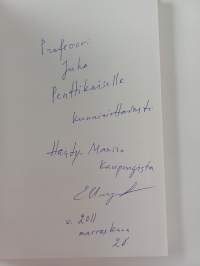 Professori
Juha
Pentikäiselle
kunnioittavasti
Hanty-Mansin
kaupungista
v. 2011
marraskuu
26